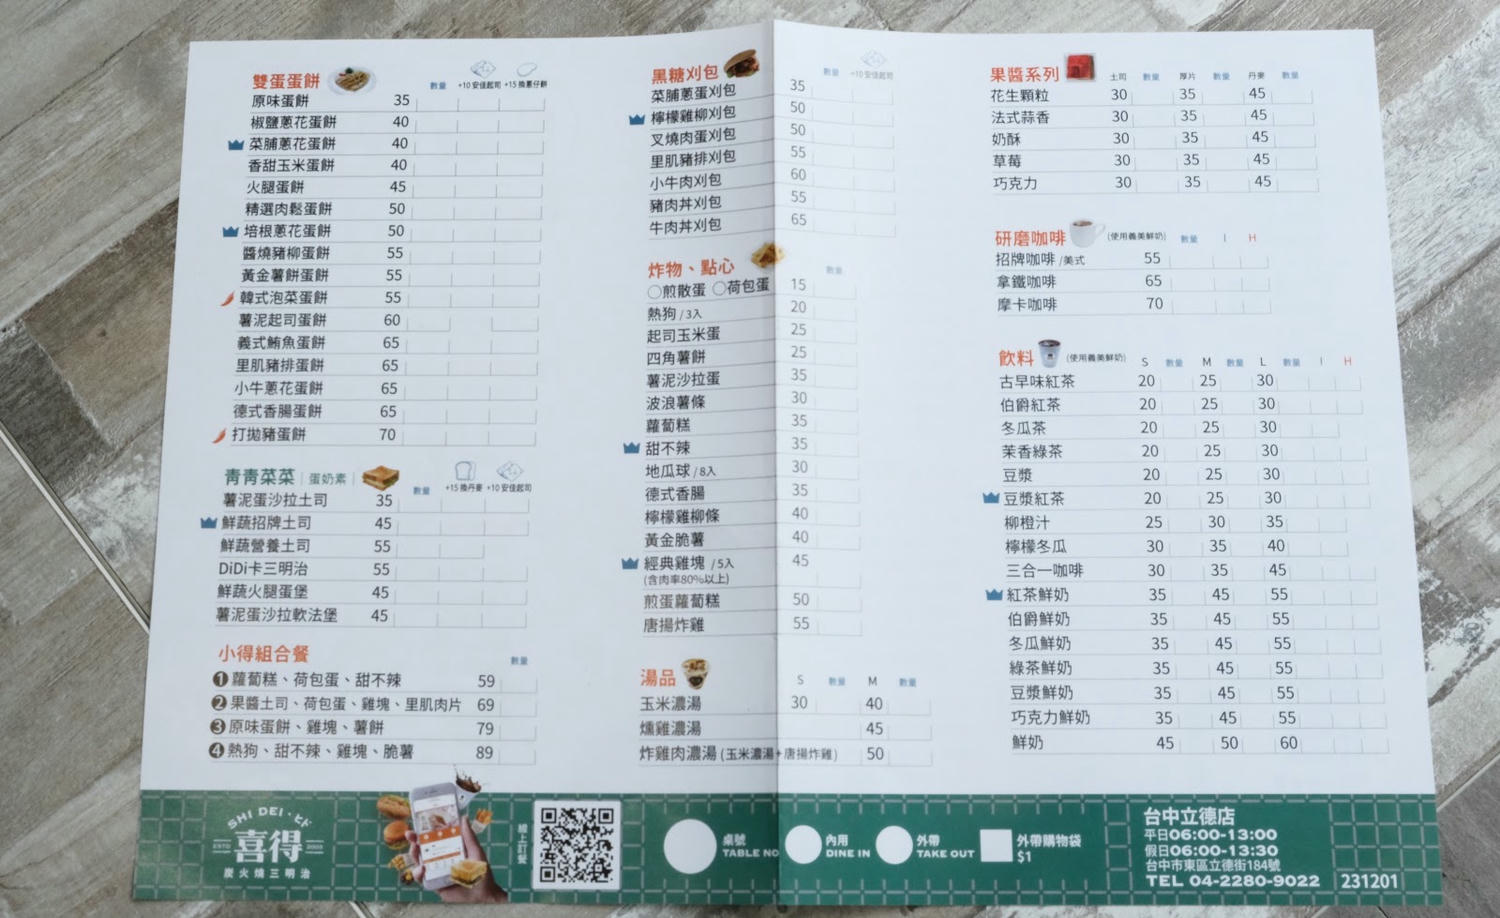 雙蛋蛋餅 數量 +10 安佳起司 +15 換蔥仔餅
原味蛋餅 35
椒鹽蔥花蛋餅 40
菜脯蔥花蛋餅 40
香甜玉米蛋餅 40
火腿蛋餅 45
精選肉鬆蛋餅 50
培根蔥花蛋餅 50
醬燒豬柳蛋餅 55
黃金薯餅蛋餅 55
韓式泡菜蛋餅 55
薯泥起司蛋餅 60
義式鮪魚蛋餅 65
里肌豬排蛋餅 65
小牛蔥花蛋餅 65
德式香腸蛋餅 65
打拋豬蛋餅 70
青青菜菜 | 蛋奶素 | 數量 +15 換丹麥 +10 安佳起司
薯泥蛋沙拉土司 35
鮮蔬招牌土司 45
鮮蔬營養土司 55
DiDi卡三明治 55
鮮蔬火腿蛋堡 45
薯泥蛋沙拉軟法堡 45
小得組合餐 數量
1 蘿蔔糕、荷包蛋、甜不辣 59
2 果醬土司、荷包蛋、雞塊、里肌肉片 69
3 原味蛋餅、雞塊、薯餅 79
4 熱狗、甜不辣、雞塊、脆薯 89
黑糖刈包 數量 +10 安佳起司
菜脯蔥蛋刈包 35
檸檬雞柳刈包 50
叉燒肉蛋刈包 50
里肌豬排刈包 55
小牛肉刈包 60
豬肉丼刈包 55
牛肉丼刈包 65
炸物、點心 數量
○煎散蛋 ○荷包蛋 15
熱狗 / 3入 20
起司玉米蛋 25
四角薯餅 25
薯泥沙拉蛋 35
波浪薯條 30
蘿蔔糕 35
甜不辣 35
地瓜球 / 8入 30
德式香腸 35
檸檬雞柳條 40
黃金脆薯 40
經典雞塊 / 5入 45
(含肉率80%以上)
煎蛋蘿蔔糕 50
唐揚炸雞 55
湯品 S 數量 M 數量
玉米濃湯 30 40
燻雞濃湯 45
炸雞肉濃湯 (玉米濃湯+唐揚炸雞) 50
果醬系列 土司 數量 厚片 數量 丹麥 數量
花生顆粒 30 35 45
法式蒜香 30 35 45
奶酥 30 35 45
草莓 30 35 45
巧克力 30 35 45
研磨咖啡 (使用義美鮮奶) 數量 I H
招牌咖啡 /美式 55
拿鐵咖啡 65
摩卡咖啡 70
飲料 (使用義美鮮奶) S 數量 M 數量 L 數量 I H
古早味紅茶 20 25 30
伯爵紅茶 20 25 30
冬瓜茶 20 25 30
茉香綠茶 20 25 30
豆漿 20 25 30
豆漿紅茶 20 25 30
柳橙汁 25 30 35
檸檬冬瓜 30 35 40
三合一咖啡 30 35 45
紅茶鮮奶 35 45 55
伯爵鮮奶 35 45 55
冬瓜鮮奶 35 45 55
綠茶鮮奶 35 45 55
豆漿鮮奶 35 45 55
巧克力鮮奶 35 45 55
鮮奶 45 50 60
SHI DEI
ESTD 喜得 2003
炭火燒三明治
線上訂餐
桌號
TABLE NO
內用
DINE IN
外帶
TAKE OUT
外帶購物袋
$1
台中立德店
平日06:00-13:00
假日06:00-13:30
台中市東區立德街184號
TEL 04-2280-9022 231201